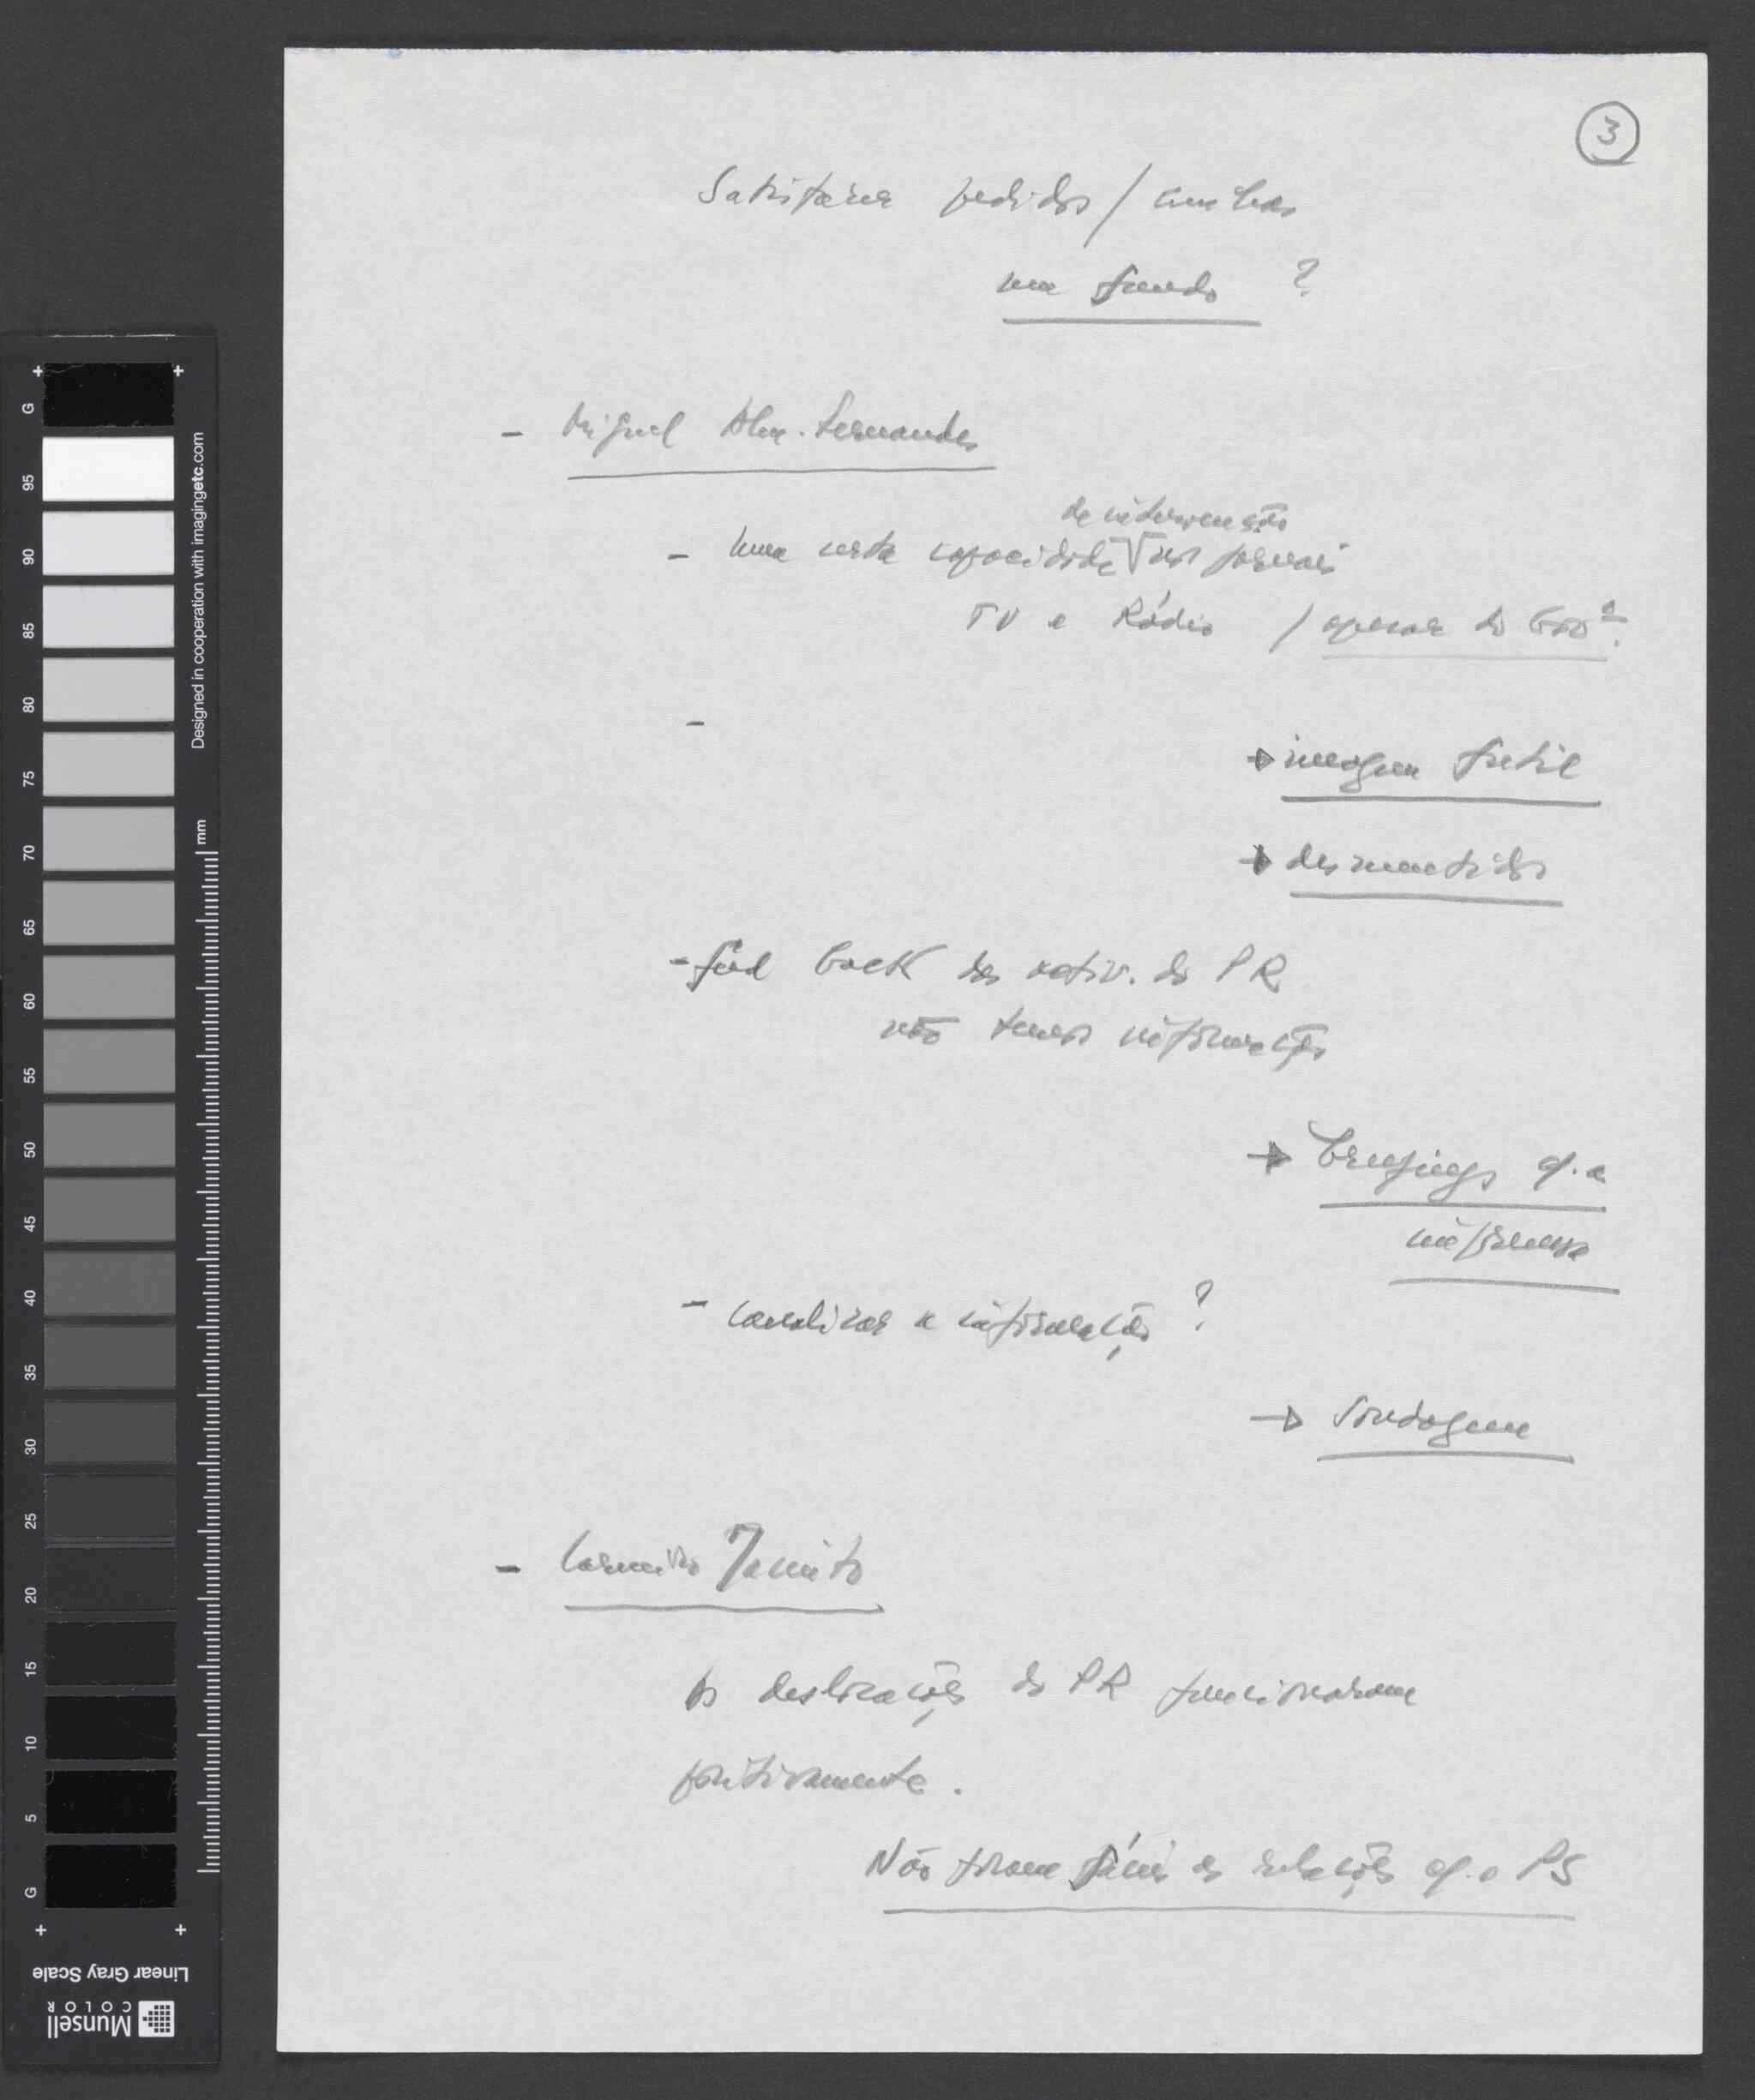 3
Satisfazer pedidos /
um fundo ?
- Miguel Alm. Fernandes
de intervenção
- Uma certa capacidade nos jornais
TV e Rádio / apesar do Govº.
-
→ imagem fútil
→ desmentidos
- feed back das activ. do PR
não temos informações
→ Briefings c/. a
informa
- canalizar a informação ?
→ Sondagem
- Carmito Jacinto
As deslocações do PR funcionaram
positivamente.
Não foram fáceis as relações c/. o PS
G
95
90
85
80
75
70
65
60
55
50
45
40
35
30
25
20
15
10
5
G
mm
Designed in cooperation with imagingetc.com
Linear Gray Scale
Munsell
COLOR